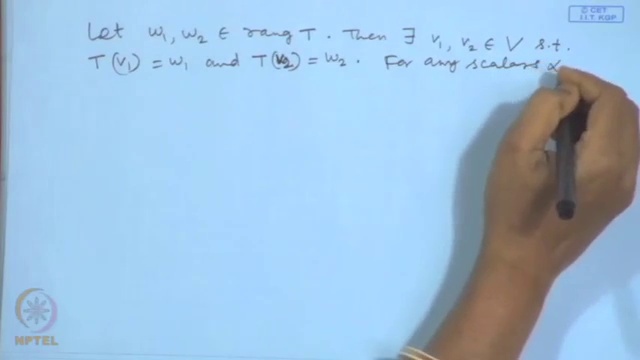 © CET
I.I.T. KGP
Let w₁, w₂ ∈ rang T. Then ∃ v₁, v₂ ∈ V s.t.
T(v₁) = w₁ and T(v₂) = w₂. For any scalars α
NPTEL